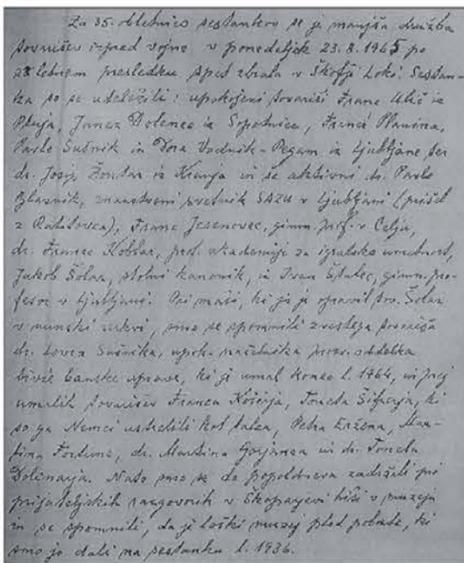 Za 35. obletnico sestankov se je manjša družba
tovarišev izpred vojne v ponedeljek 23. 8. 1965 po
letnem presledku spet zbrala v Škofji Loki. Sestan-
ka so se udeležili: upokojeni tovariši Franc Ulič iz
Ptuja, Janez Dolenec iz Sopotnice, Franci Planina,
Pavle Sušnik in Dora Vodnik-Pegam iz Ljubljane ter
dr. Josip Žontar iz Kranja in še aktivni dr. Pavle
Blaznik, znanstveni svetnik SAZU v Ljubljani (prišel
z Rakitovca), Franc Jesenovec, gimn. prof. v Celju,
dr. France Koblar, prof. akademije za igralsko umetnost,
Jakob Šolar, stolni kanonik, in Ivan Stalec, gimn. pro-
fesor v Ljubljani. Pri maši, ki jo je opravil tov. Šolar
v nunski cerkvi, smo se spomnili zvestega tovariša
dr. Lovra Sušnika, upok. načelnika prosv. oddelka
bivše banske uprave, ki je umrl konec l. 1964, in prej
umrlih tovarišev Franca Koširja, Toneta Šifrerja, ki
so ga Nemci ustrelili kot talca, Petra Eržena, Mar-
tina Fortune, dr. Martina Gorjanca in dr. Toneta
Dolenarja. Nato smo se do popoldneva zadržali pri
prijateljskih razgovorih v Škoparjevi hiši v muzeju
in se spomnili, da je loški muzej plod pobude, ki
smo jo dali na sestanku l. 1936.